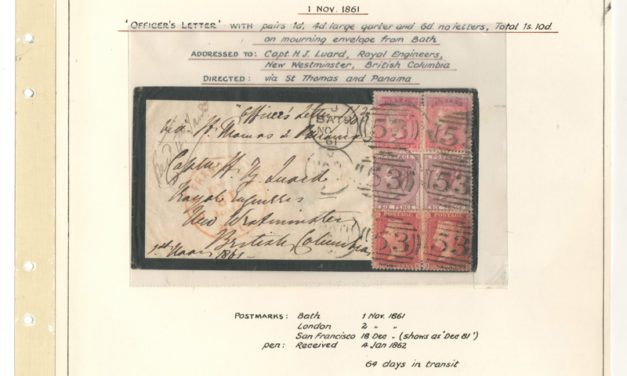 1 NOV. 1861
'OFFICER'S LETTER' WITH pairs 1d, 4d large garter and 6d no letters, Total 1s. 10d
on mourning envelope from Bath
ADDRESSED TO: Capt. H. J. Luard, Royal Engineers,
New Westminster, British Columbia
DIRECTED: via St Thomas and Panama
"Officer's Letter"
via St. Thomas & Panama
BATH
NO 1
61
53
53
53
53
SIX PENCE
53
53
Captn H. J. Luard
Royal Engineers
New Westminster
British Columbia
1861
POSTMARKS: Bath 1 Nov. 1861
London 2 " "
San Francisco 18 Dec " (shows as "Dec 81")
pen: Received 4 Jan 1862
64 days in transit